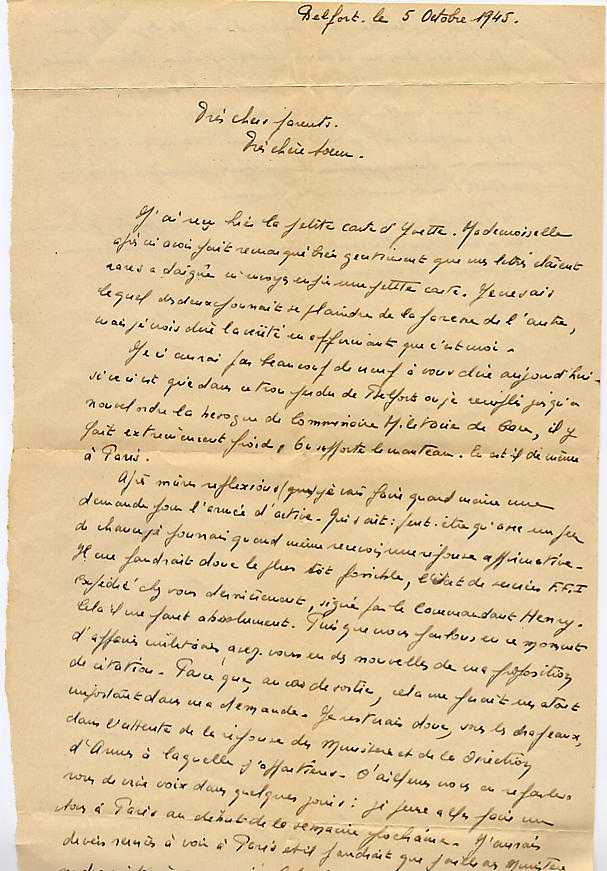 Belfort. le 5 Octobre 1945.
Très chers parents.
Très chère soeur.
J'ai reçu hier la petite carte d'Yvette. Mademoiselle
après m'avoir fait remarquer bien gentiment que mes lettres étaient
rares a daigné m'envoyer enfin une petite carte. Je ne sais
lequel des deux pourrait se plaindre de la paresse de l'autre,
mais je crois dire la vérité en affirmant que c'est moi.
Je n'aurai pas beaucoup de neuf à vous dire aujourd'hui
si ce n'est que dans ce trou perdu de Belfort où je remplis jusqu'à
nouvel ordre la besogne de Commissaire Militaire de Gare, il y
fait extrêmement froid, on supporte le manteau. En est-il de même
à Paris.
Après mûres réflexions (que) je vais faire quand même une
demande pour l'armée d'active. Qui sait: peut-être qu'avec un peu
de chance je pourrai quand même recevoir une réponse affirmative.
Il me faudrait donc le plus tôt possible, l'Etat de services F.F.I
expédié chez vous dernièrement, signé par le Commandant Henry.
Cela il me faut absolument. Puisque nous parlons en ce moment
d'affaires militaires avez-vous eu des nouvelles de ma proposition
de citation. Parce que, au cas de sortie, cela me ferait un atout
important dans ma demande. Je resterais donc, sous les drapeaux,
dans l'attente de la réponse du Ministère et de la Direction
d'Armes à laquelle j'appartiens. D'ailleurs nous en reparlerons
de vive voix dans quelques jours: je pense aller faire un
tour à Paris au début de la semaine prochaine. J'aurais
divers services à voir à Paris et il faudrait que j'aille au Ministère